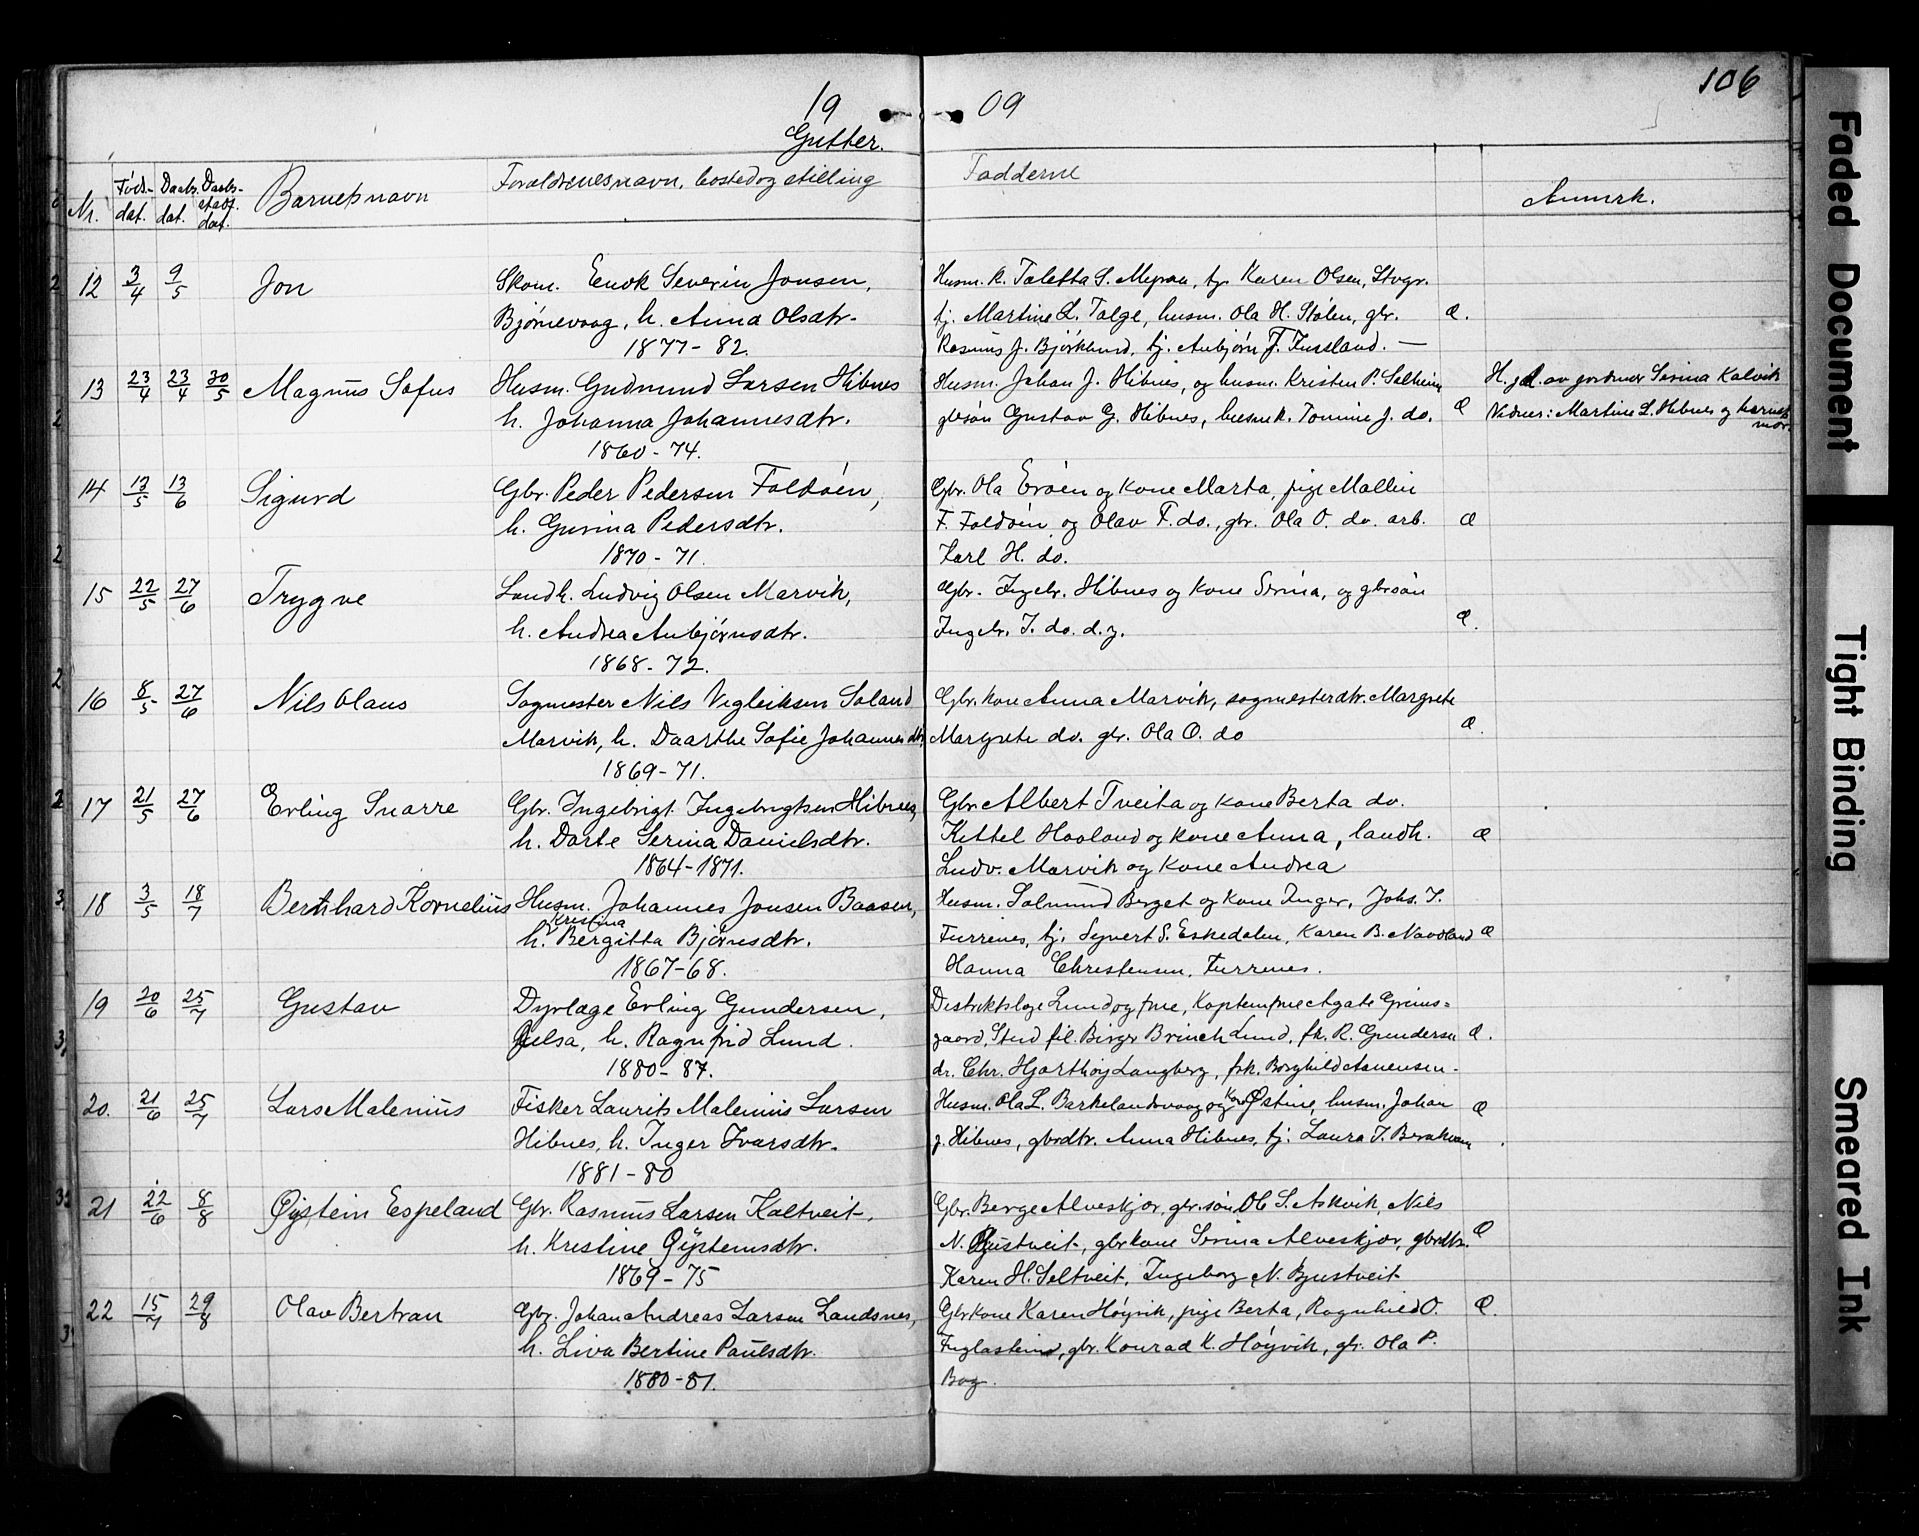 19 09
106
Gutter.
Nr. Föds.dat. Daabs.dat. Daabsstadf.dat. Barnets navn Forældrenes navn, bosted og stilling Fadderne Anmrk.
12 3/4 9/5 Jon Skom. Enok Severin Jonsen, Husm. k. Taletta S. Myraa, tj. Karen Olsen, Stvgr.
Bjørnevaag, h. Anna Olsdtr. tj. Martine L. Talge, husm. Ola H. Stølen, gbr. Æ.
1877-82. Rasmus J. Björklund, tj. Anbjörn T. Fussland. —
13 23/4 23/4 30/5 Magnus Sofus Husm. Gudmund Larsen Hibnes Husm. Johan J. Hibnes, og husm. Kristen P. Selheim H. d. av jordmor Serina Kalvik
h. Johanna Johannesdtr. gbrsön Gustav G. Hibnes, husmk. Tomine J. do. Æ Vidner: Martine L. Hibnes og barnets mor.
1860-74.
14 13/5 13/6 Sigurd Gbr. Peder Pedersen Foldöen, Gbr. Ola Eröen og kone Marta, pige Mallin
h. Gurina Pedersdtr. F. Foldöen og Olav F. do., gbr. Ola O. do. arb. Æ
1870-71. Karl H. do.
15 22/5 27/6 Trygve Landh. Ludvig Olsen Marvik, Gbr. Ingebr. Hibnes og kone Serina, og gbrsön
h. Andrea Anbjörnsdtr. Ingebr. I. do. d.y. Æ.
1868-72.
16 8/5 27/6 Nils Olaus Sagmester Nils Vegleiksen Saland Gbr. kone Anna Marvik, sagmesterdtr. Margrete
Marvik, h. Daarthe Sofie Johannesdtr. Margrete do. gbr. Ola O. do Æ.
1869-71.
17 21/5 27/6 Erling Snorre Gbr. Ingebrigt Ingebrigtsen Hibnes, Gbr. Albert Tveita og kone Berta do.
h. Dorte Serina Danielsdtr. Kittel Haaland og kone Anna, landh. Æ
1864-1871. Ludv. Marvik og kone Andrea
18 3/5 18/7 Bernhard Kornelius Husm. Johannes Jonsen Baasen, Husm. Salmund Berget og kone Inger, Johs. I.
h. Kristina Bergitta Björnsdtr. Furrenes, tj. Syvert S. Eskedalen, Karen B. Navdland Æ
1867-68. Hanna Christensen, Furrenes.
19 20/6 25/7 Gustav Dyrlæge Erling Gundersen, Distriktslæge Lund og frue, Kapteinfrue Agate Grims=
Jelsa, h. Ragnfrid Lund. gaard, Stud fil. Birger Brinch Lund, frk. R. Gundersen Æ.
1880-87. dr. Chr. Hjorthöy Langberg, frk. Borghild Aanensen.
20. 21/6 25/7 Lars Malenius Fisker Laurits Malenius Larsen Husm. Ola L. Barkelandsvaag og kone Östine, husm. Johan Æ
Hibnes, h. Inger Ivarsdtr. J. Hibnes, gbrdtr. Anna Hibnes, tj. Laura I.
1881-80
21 22/6 8/8 Øystein Espeland Gbr. Rasmus Larsen Kaltveit, Gbr. Berge Alveskjær, gbr.sön Ole S. Askvik, Nils
h. Kristine Øysteinsdtr. N. Bjustveit, gbrkone Serina Alveskjær, gbrdtr. Æ
1869-75 Karen H. Seltveit, Ingeborg N. Bjustveit
22 15/7 29/8 Olav Bertran Gbr. Johan Andreas Larsen Landsnes, Gbrkone Karen Höyvik, pige Berta, Ragnhild O. Æ.
h. Liva Bertine Paulsdtr. Fuglastein, gbr. Konrad K. Höyvik, gbr. Ola P.
1880-81. Bog.
Faded Document
Tight Binding
Smeared Ink